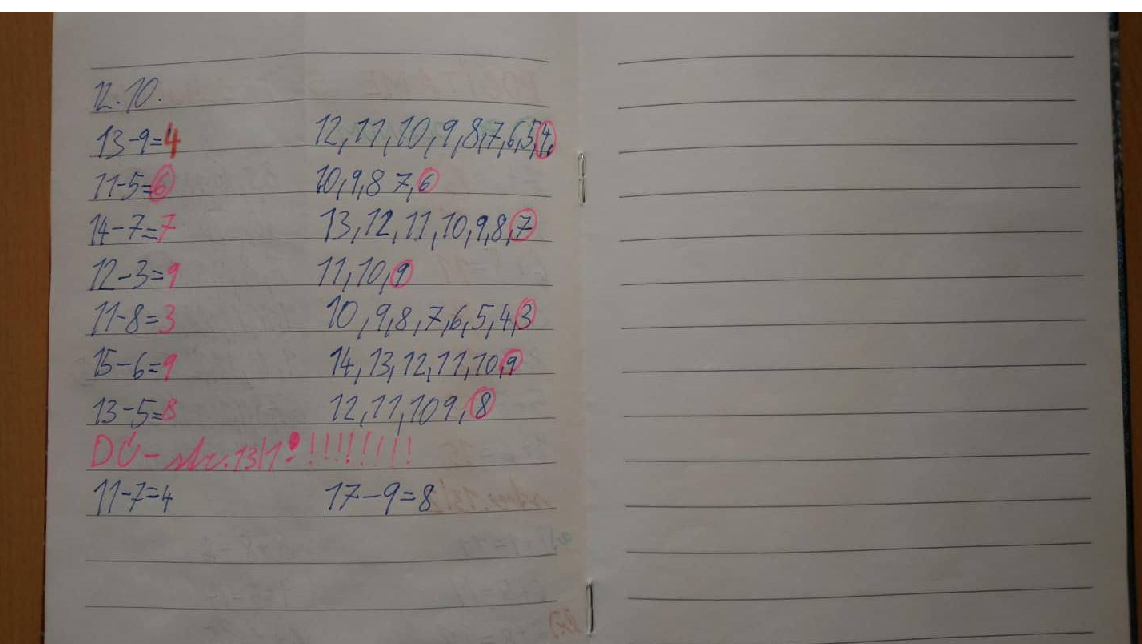 12.10.
13-9=4 12,11,10,9,8,7,6,5,4,
11-5=6 10,9,8 7,6
14-7=7 13,12,11,10,9,8,7
12-3=9 11,10,9
11-8=3 10,9,8,7,6,5,4,3
15-6=9 14,13,12,11,10,9
13-5=8 12,11,10 9,8
DÚ- str. 13/1 !!!!!!!!
11-7=4 17-9=8